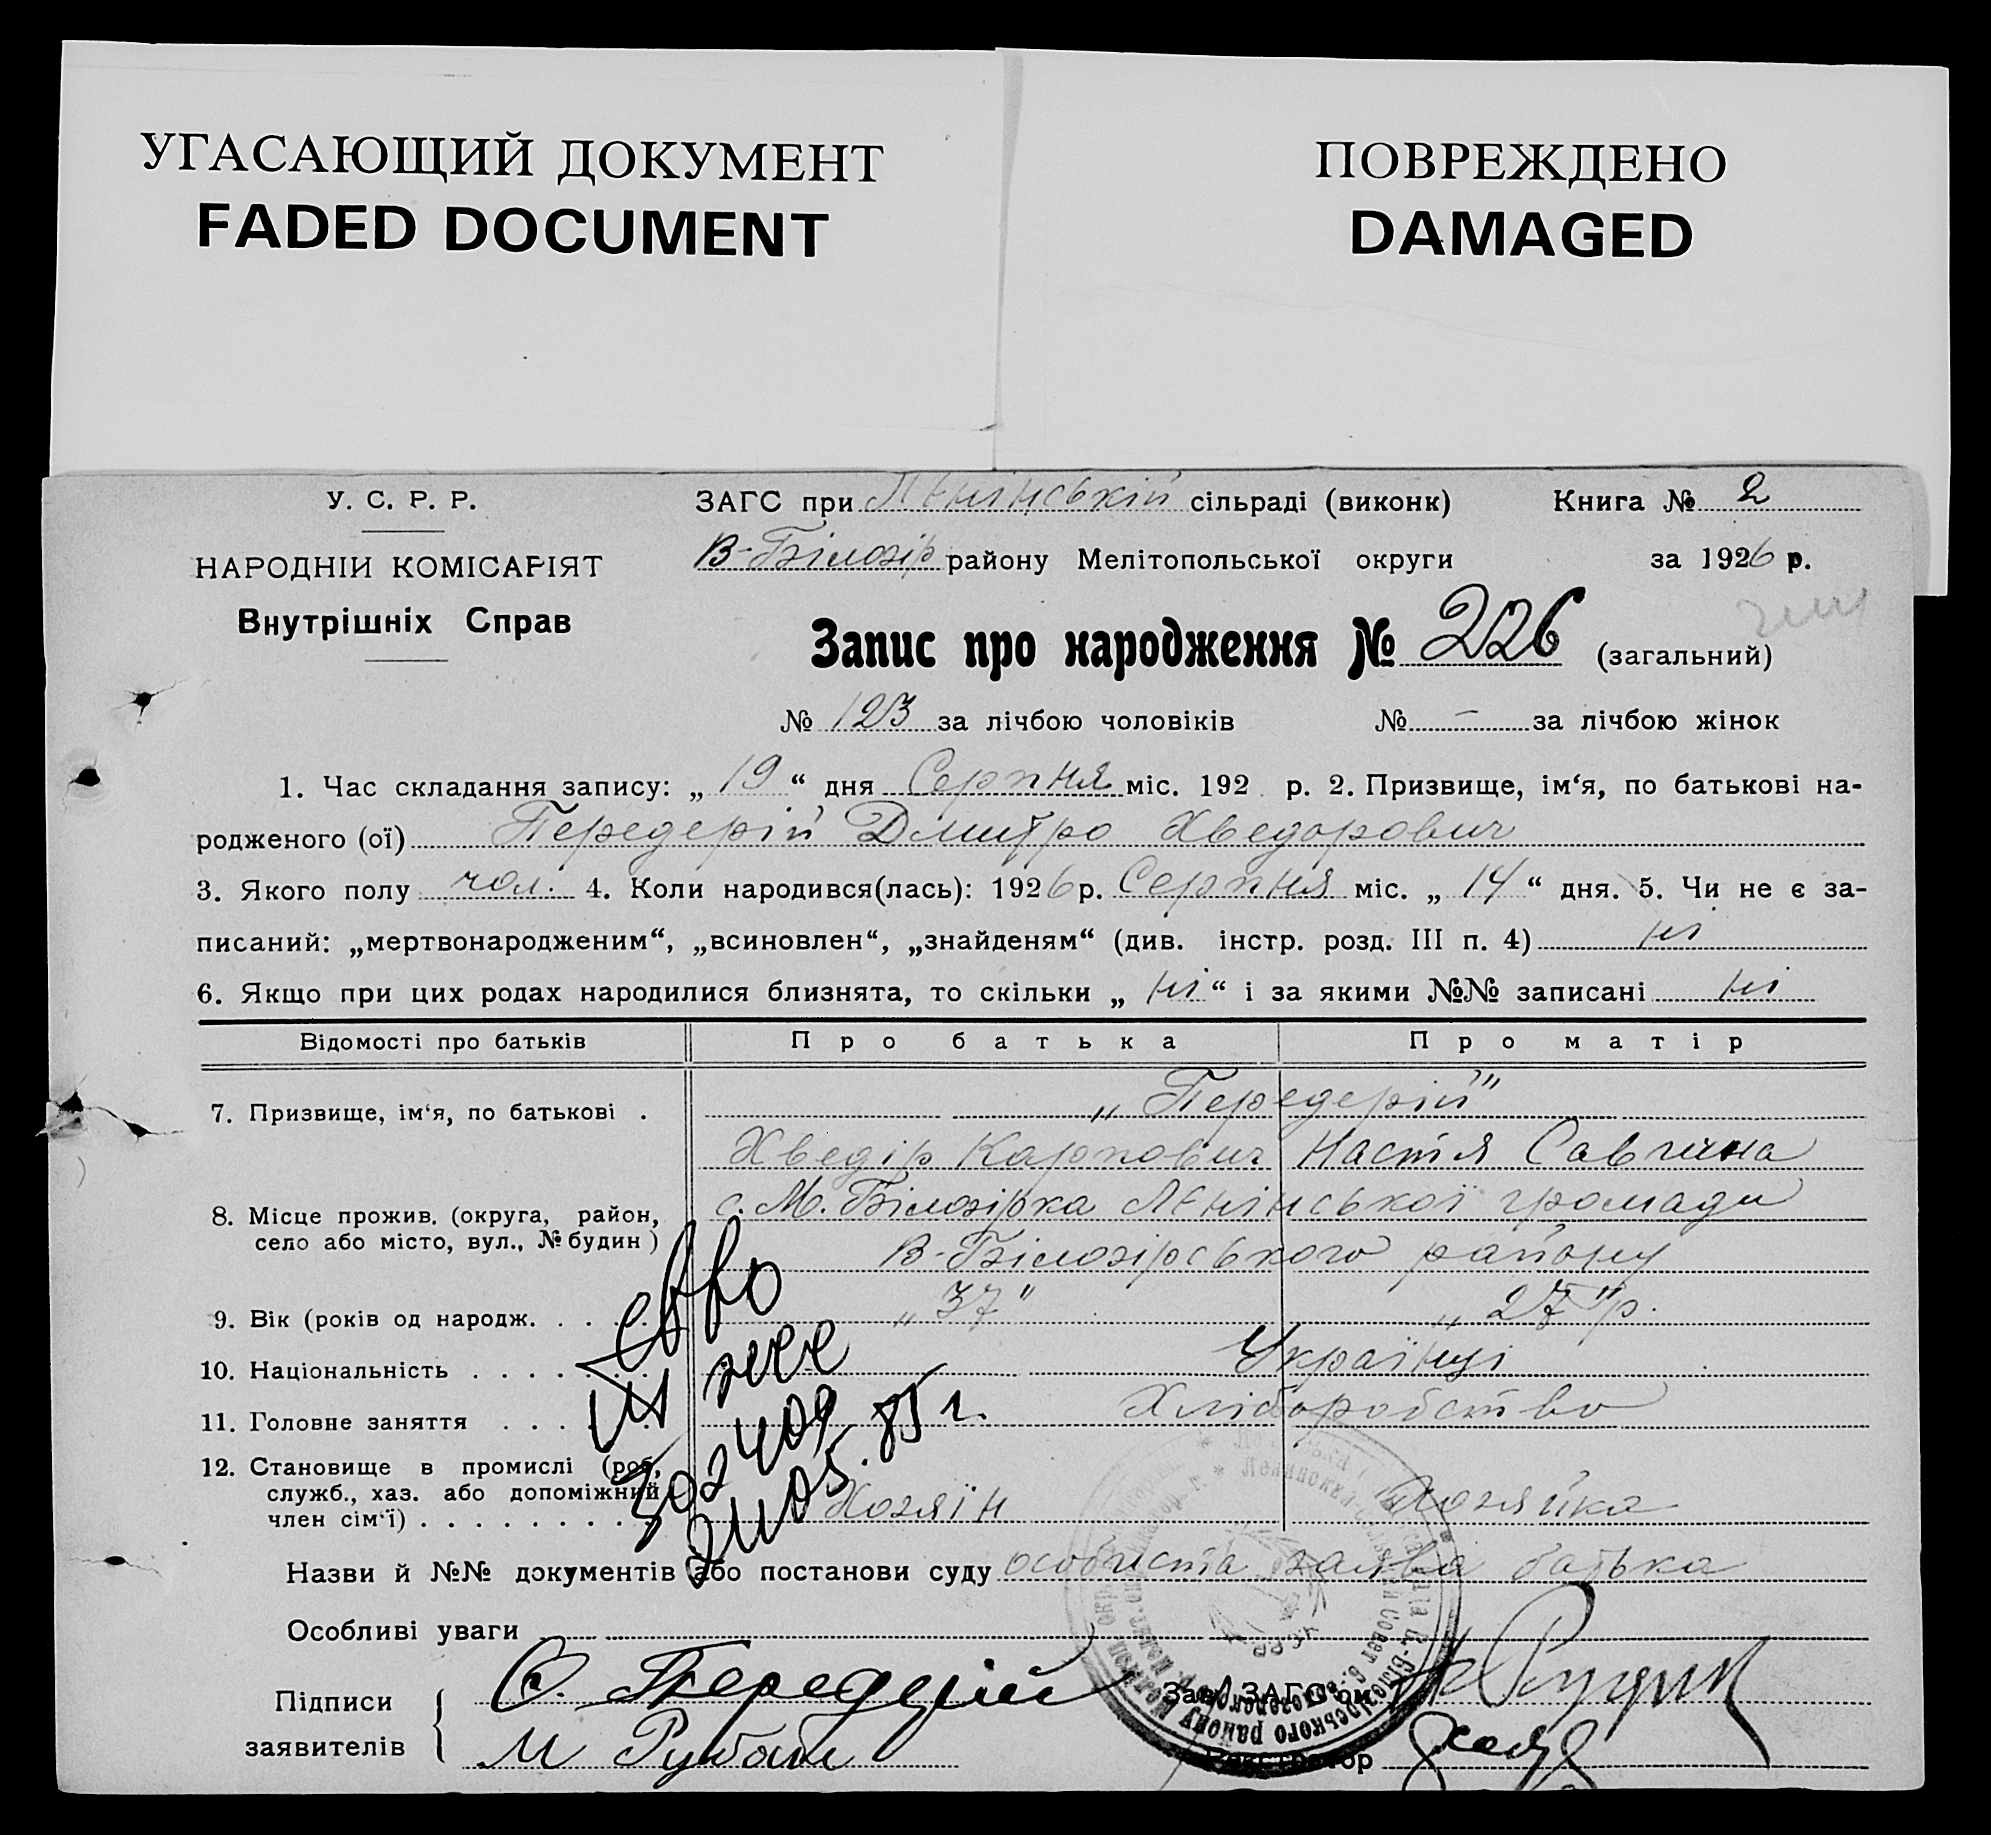 УГАСАЮЩИЙ ДОКУМЕНТ
FADED DOCUMENT
ПОВРЕЖДЕНО
DAMAGED
У. С. Р. Р.
НАРОДНІЙ КОМІСАРІЯТ
Внутрішніх Справ
ЗАГС при Лєнінській сільраді (виконк) Книга № 2
В-Білозір району Мелітопольської округи за 1926 р.
Запис про народження № 226 (загальний)
№ 123 за лічбою чоловіків № - за лічбою жінок
1. Час складання запису: „ 19 “ дня Серпня міс. 192 р. 2. Призвище, ім‘я, по батькові на-
родженого (ої) Передерій Дмитро Хведорович
3. Якого полу чол. 4. Коли народився(лась): 1926 р. Серпня міс. „ 14 “ дня. 5. Чи не є за-
писаний: „мертвонародженим“, „всиновлен“, „знайденям“ (див. інстр. розд. III п. 4) ні
6. Якщо при цих родах народилися близнята, то скільки „ ні “ і за якими №№ записані ні
Відомості про батьків Про батька Про матір
7. Призвище, ім‘я, по батькові . „Передерій"
Хведір Карпович Настя Савчина
8. Місце прожив. (округа, район, село або місто, вул., № будин) с. М. Білозірка Лєнінської громади
В-Білозірського району
9. Вік (років од народж. . . . . „37" „27" р.
10. Національність . . . . . . . Українці
11. Головне заняття . . . . . . Хліборобство
12. Становище в промислі (роб,
служб., хаз. або допоміжний
член сім‘ї) . . . . . . . . . . Хозяїн Хозяйка
Назви й №№ документів або постанови суду особиста заява батька
Особливі уваги
Підписи
заявителів
Передерій
М Рубат
Зав. ЗАГС‘ом
Реєстратор